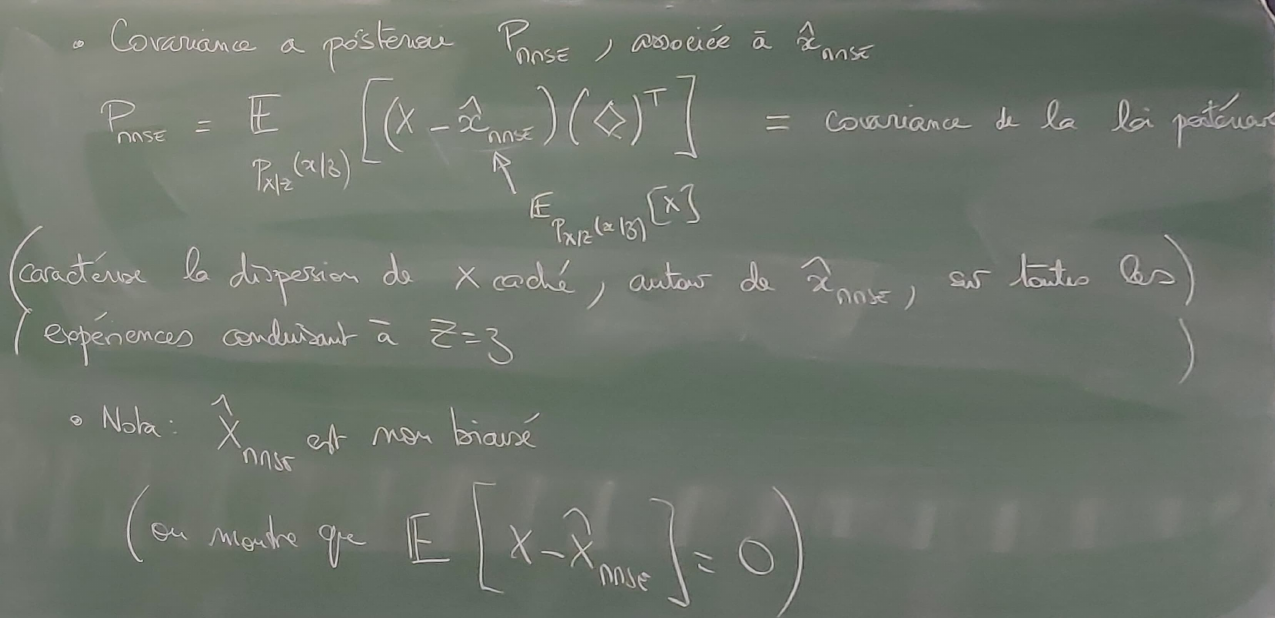 • Covariance a posteriori P_MMSE, associée à x̂_MMSE
P_MMSE = 𝔼_{p_{X|Z}(x|z)} [(X - x̂_MMSE)(◇)^T] = covariance de la loi postérieure
↑ 𝔼_{p_{X|Z}(x|z)}[X]
(caractérise la dispersion de X caché, autour de x̂_MMSE, sur toutes les
expériences conduisant à Z=z)
• Nota: X̂_MMSE est non biaisé
(on montre que 𝔼[X - X̂_MMSE] = 0)